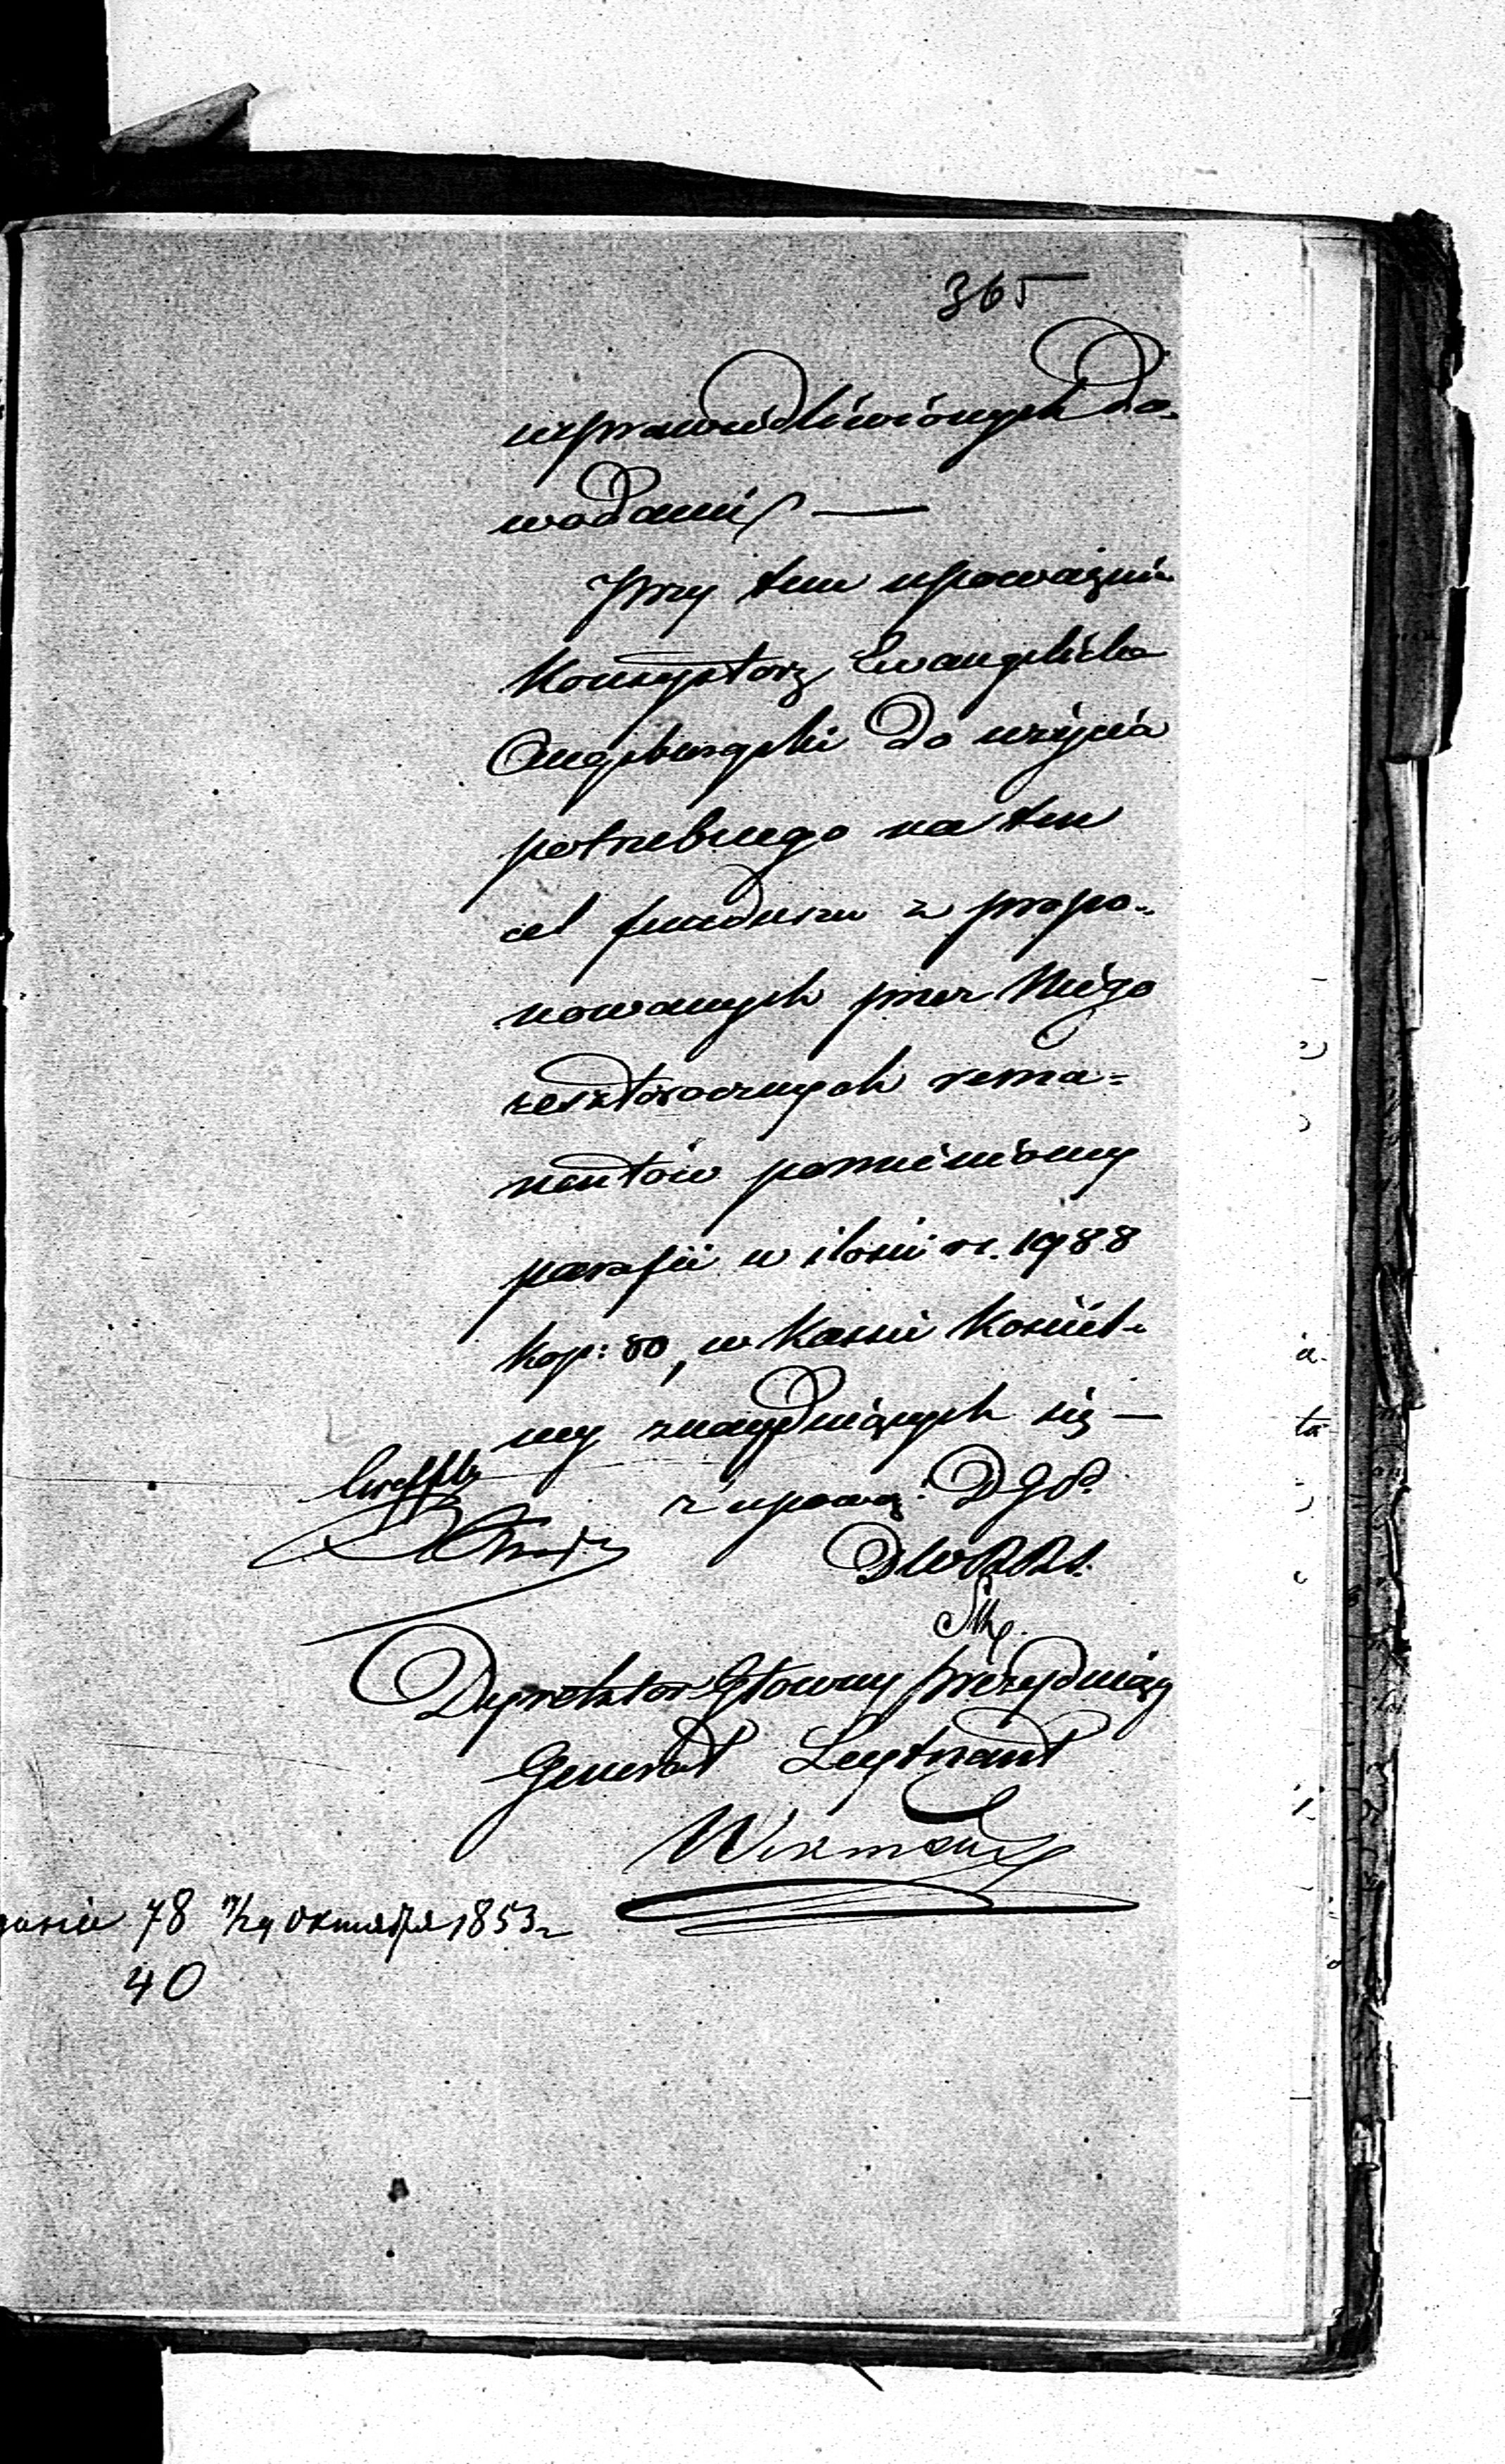 365
usprawiedliwionych do-
wodami, —
Przy tem upoważnia
Konsystorz Ewangelicko
Augsburgski do użycia
potrzebnego na ten
cel funduszu z propo-
nowanych przez Niego
zeszłorocznych rema=
nentów pomienionej
parafii w ilości rs. 1988
kop: 80, w Kassie Kościel-
nej znajdujących się —
z upoważ: DGP.
DWRRS.
Dyrektor Główny Prezydujący
Generał Leytnant
Wikiński
78 17/29 Октября 1853 г
40